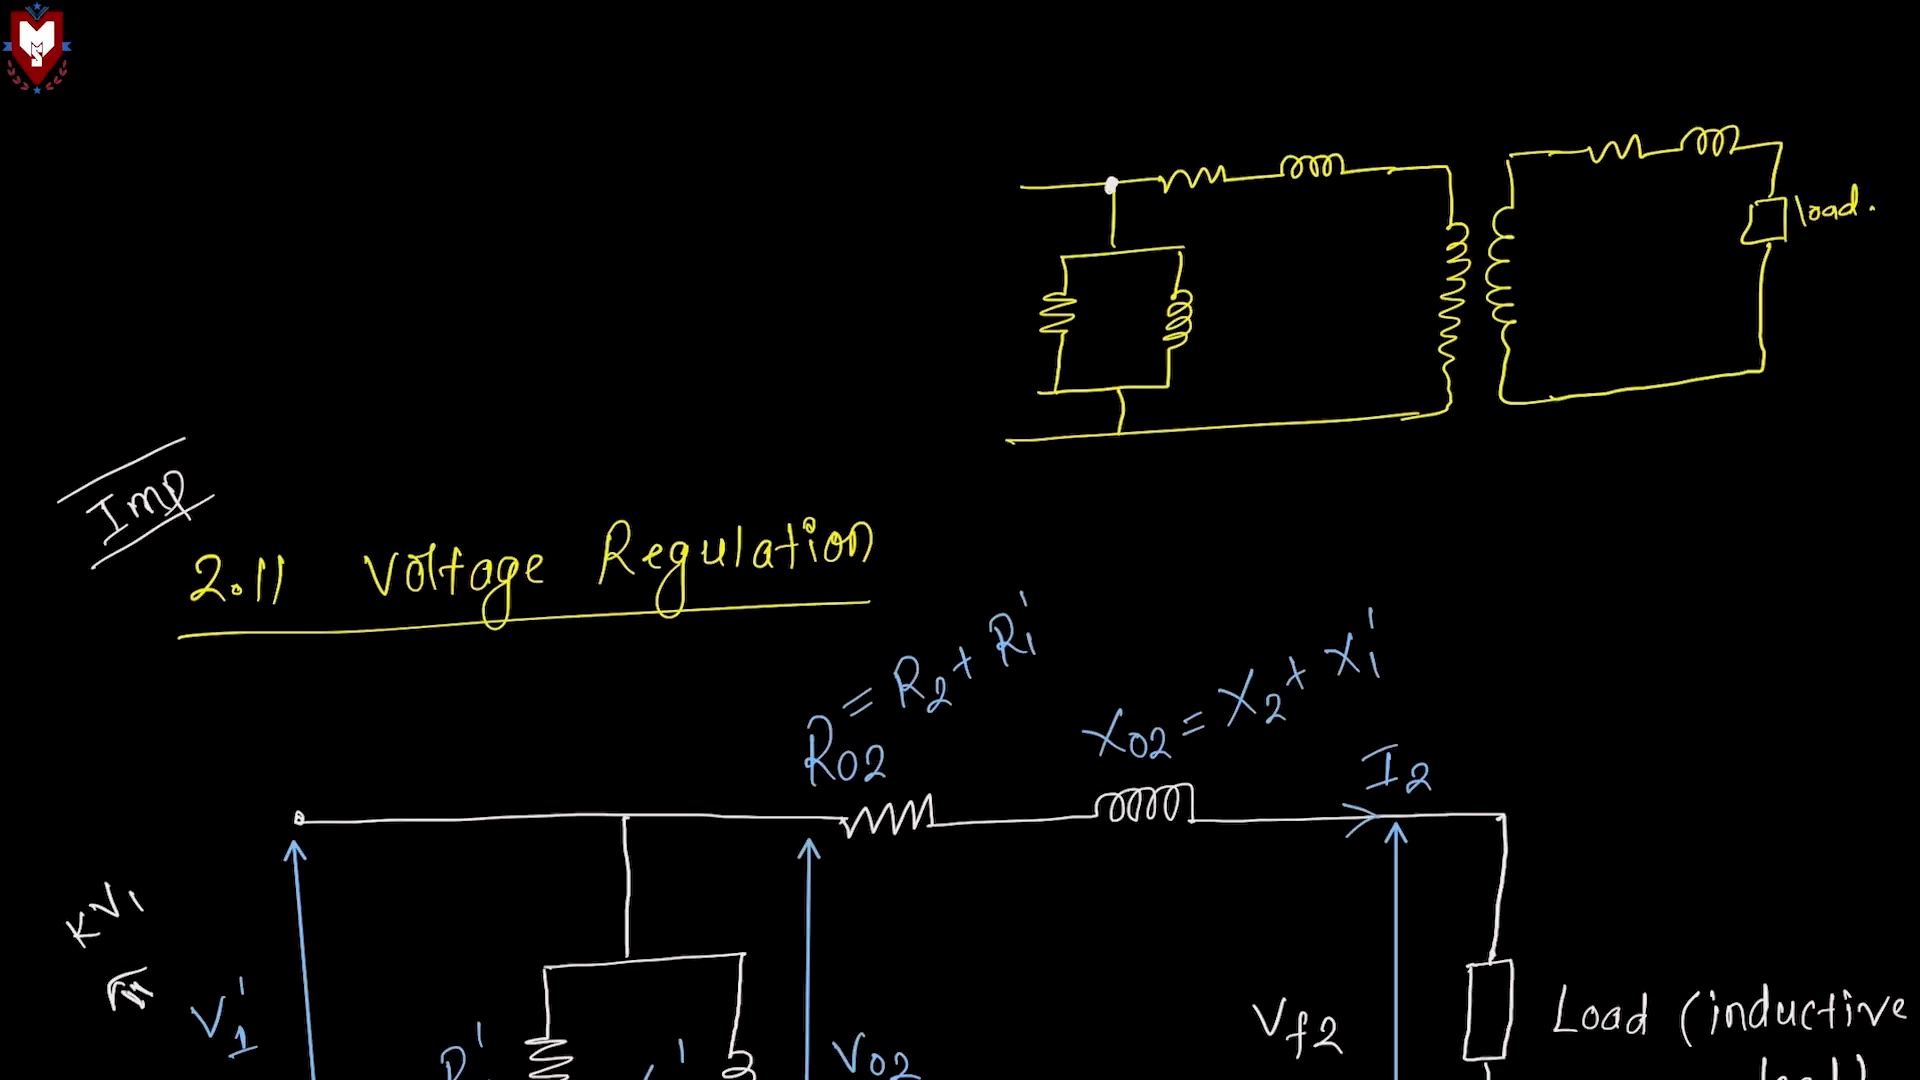 load.
Imp
2.11 Voltage Regulation
R02 = R2 + R1'
X02 = X2 + X1'
I2
KV1
V1'
V02
Vf2
Load (inductive